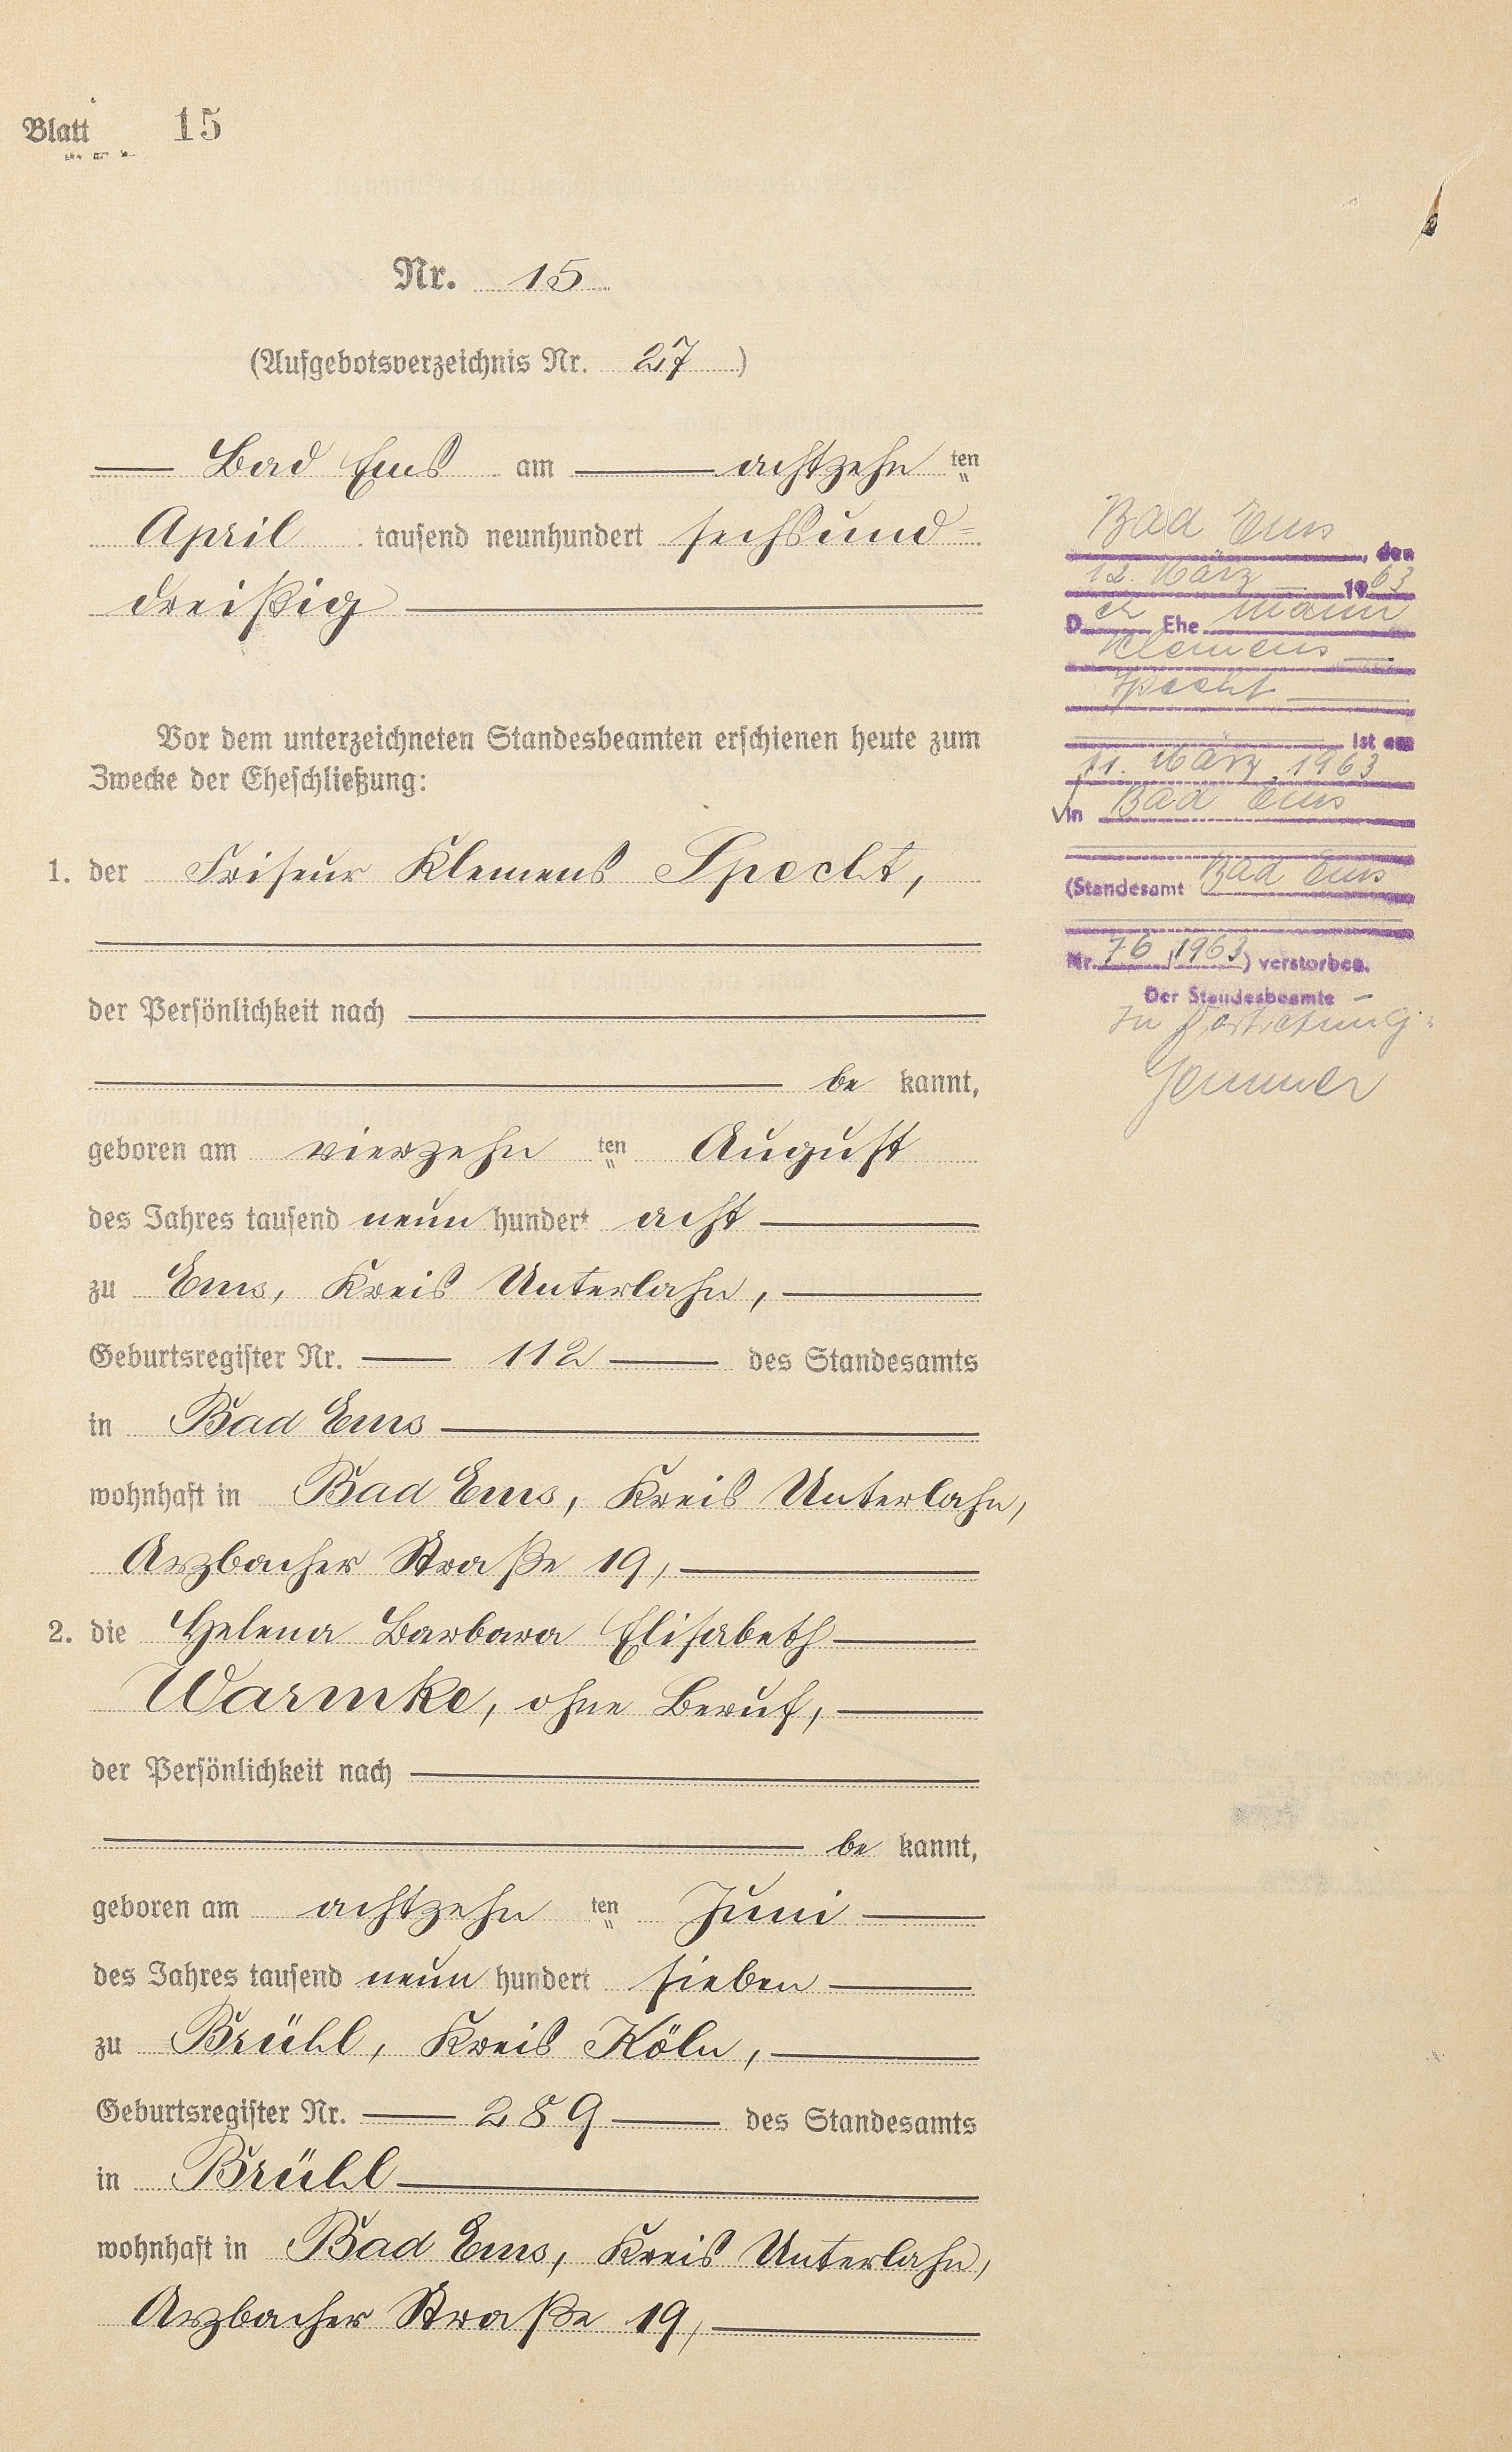 Blatt 15
Nr. 15
(Aufgebotsverzeichnis Nr. 27)
Bad Ems am achtzehn ten
April tausend neunhundert sechsund=
dreißig
Vor dem unterzeichneten Standesbeamten erschienen heute zum
Zwecke der Eheschließung:
1. der Friseur Klemens Specht,
der Persönlichkeit nach
be kannt,
geboren am vierzehn ten August
des Jahres tausend neun hundert acht
zu Ems, Kreis Unterlahn,
Geburtsregister Nr. 112 des Standesamts
in Bad Ems
wohnhaft in Bad Ems, Kreis Unterlahn,
Arzbacher Straße 19,
2. die Helena Barbara Elisabeth
Warmke, ohne Beruf,
der Persönlichkeit nach
be kannt,
geboren am achtzehn ten Juni
des Jahres tausend neun hundert sieben
zu Brühl, Kreis Köln,
Geburtsregister Nr. 289 des Standesamts
in Brühl
wohnhaft in Bad Ems, Kreis Unterlahn,
Arzbacher Straße 19,
Bad Ems, den
12. März 1963
Der Ehe mann
Klemens
Specht
ist am
11. März 1963
in Bad Ems
(Standesamt Bad Ems
Nr. 76/1963) verstorben.
Der Standesbeamte
In Vertretung: